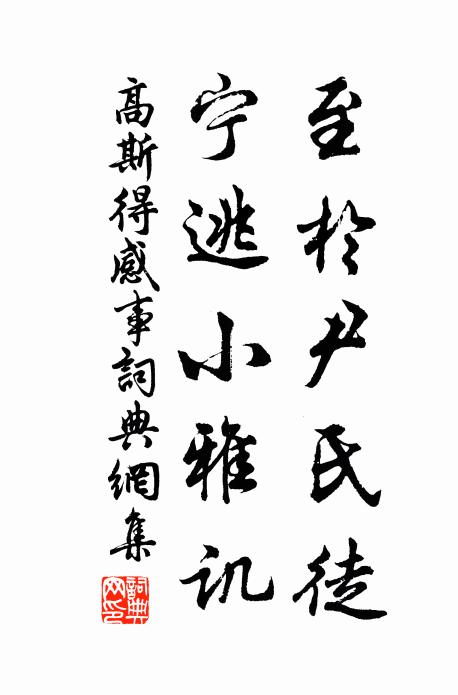 至於尹氏徒
宁逃小雅讥
高斯得感事詞典網集
詞典網印